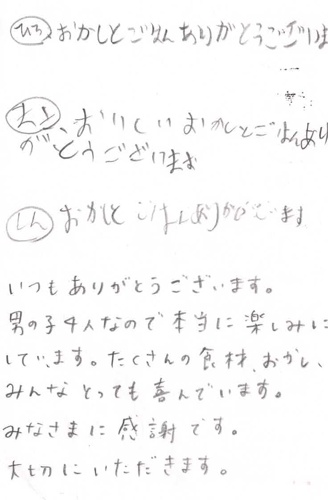 ひろ おかしとごはんありがとうございま
おいしいおかしとごはんあり
がとうございます
しん おかしと ごはんありがとうございます
いつもありがとうございます。
男の子4人なので本当に楽しみに
しています。たくさんの食材、おかし、
みんなとっても喜んでいます。
みなさまに感謝です。
大切にいただきます。